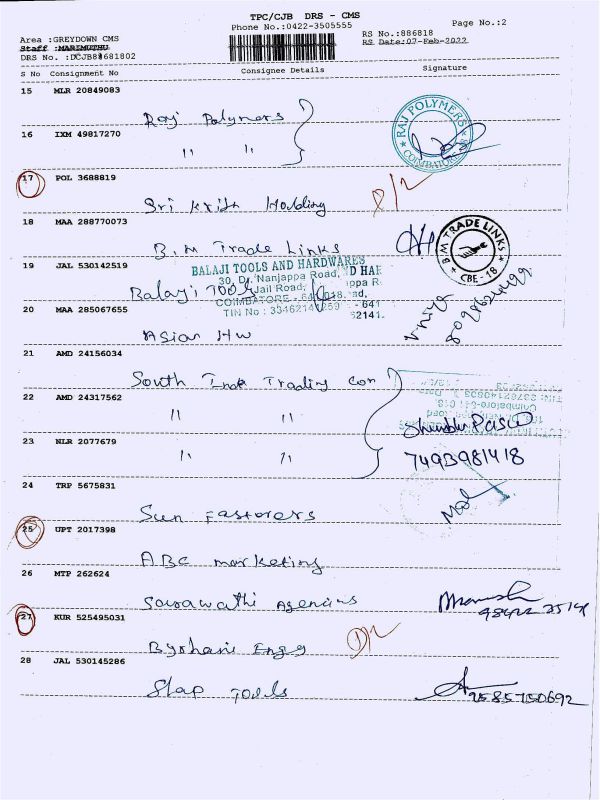 TPC/CJB DRS - CMS
Phone No.:0422-3505555
Page No.:2
Area :GREYDOWN CMS
RS No.:886818
Staff :MARIMUTHU
RS Date:07-Feb-2022
DRS No. :DCJB88681802
S No Consignment No Consignee Details Signature
15 MLR 20849083
Raj Polymers
RAJ POLYMERS
COIMBATORE
16 IXM 49817270
" "
17 POL 3688819
Sri Krish Holding
18 MAA 288770073
B.M Trade Links
B M TRADE LINKS
CBE - 18
19 JAL 530142519
BALAJI TOOLS AND HARDWARES
30, D, Nanjappa Road,
Jail Road,
COIMBATORE - 641018.
TIN No : 33462141259
Balaji Tools
20 MAA 285067655
Asian HW
21 AMD 24156034
South India Trading Con
22 AMD 24317562
" "
23 NLR 2077679
" "
7493981418
24 TRP 5675831
Sun Fastorers
25 UPT 2017398
ABC marketing
26 MTP 262624
Saraswathi Agencies
27 KUR 525495031
Engg
28 JAL 530145286
Slap Tools
9585750692